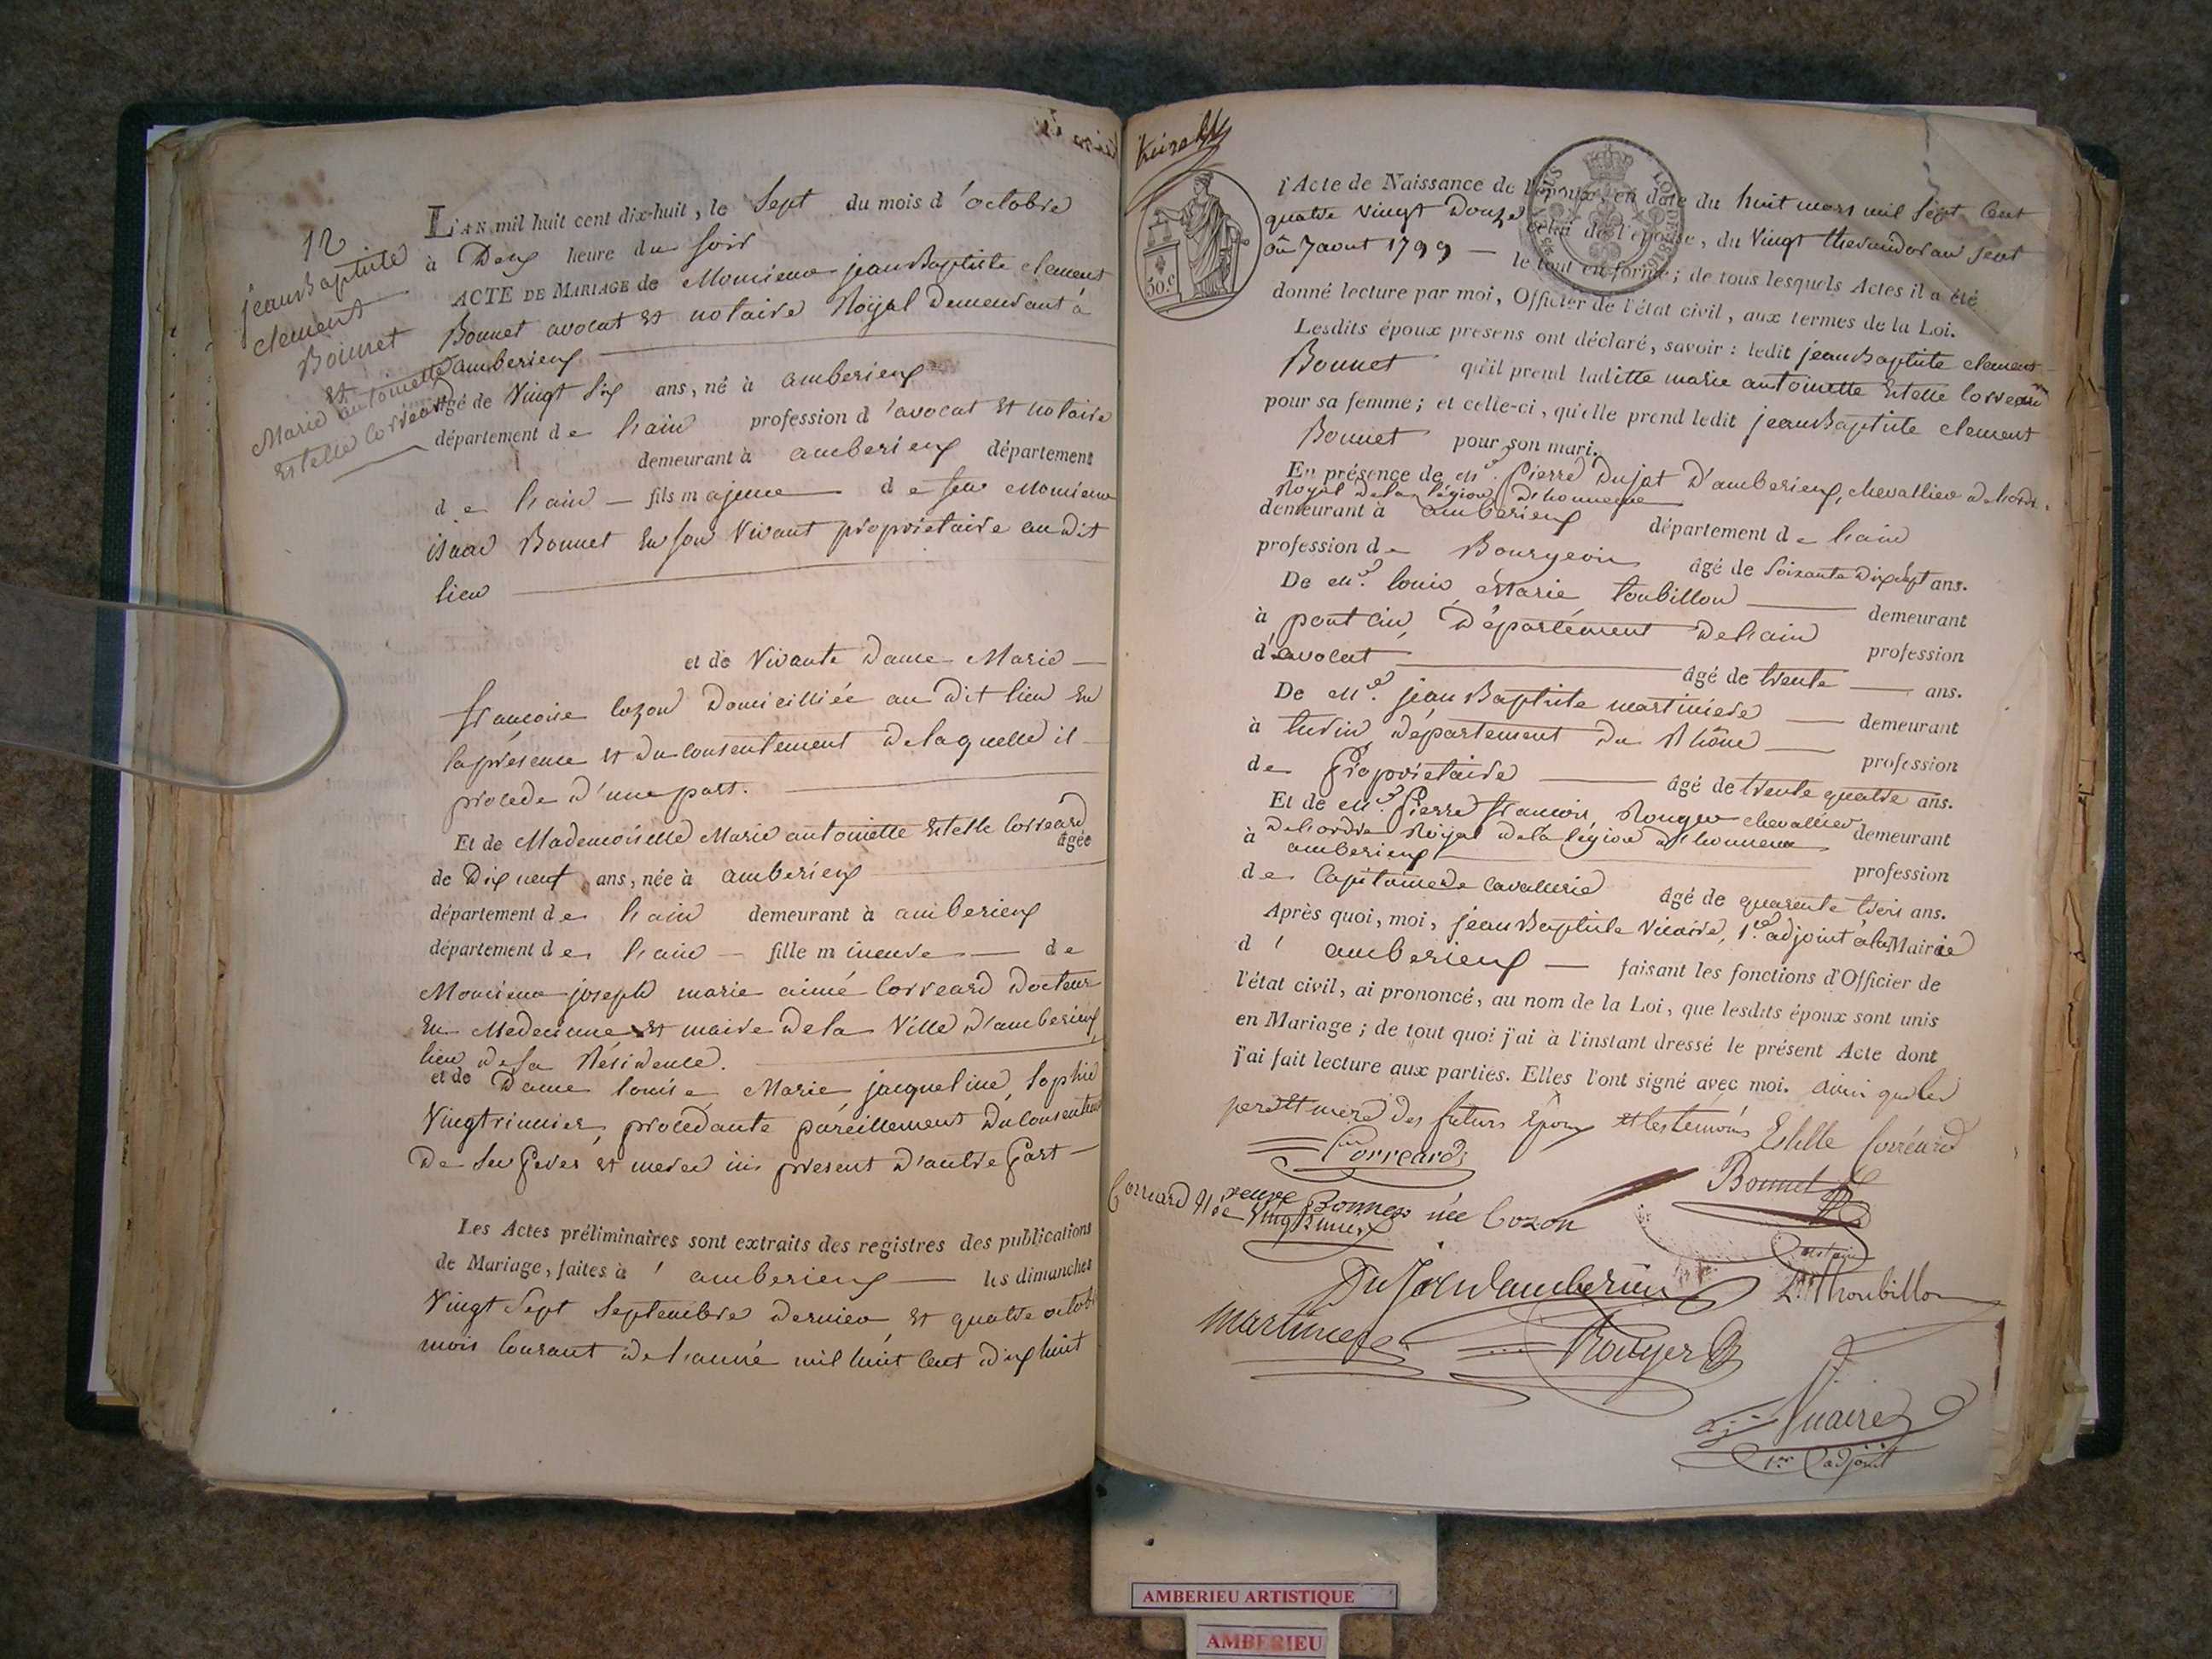 12
jean Baptiste
clement
Bonnet
et
Marie antoinette
Estelle Corréard
L'AN mil huit cent dix-huit, le Sept du mois d'octobre
à Deux heure du soir
ACTE DE MARIAGE de Monsieur jean Baptiste clement
Bonnet avocat et notaire Royal demeurant à
amberieux
âgé de Vingt Six ans, né à amberieux
département de l'ain profession d'avocat et notaire
demeurant à amberieux département
de l'ain fils majeur de feu Monsieur
isaac Bonnet En son Vivant proprietaire audit
lieu
et de Vivante Dame Marie
francoise cozon Domicilliée au dit lieu En
la présence et du consentement de laquelle il
procede d'une part.
Et de Mademoiselle Marie antoinette Estelle Correard
âgée
de Dix neuf ans, née à amberieux
département de l'ain demeurant à amberieux
département de l'ain fille mineure de
Monsieur joseph marie aimé Correard Docteur
En Medecinne et maire de la Ville d'amberieux
lieu de sa Résidence.
et de Dame louise Marie jacqueline Sophie
Vingtrinnier, procédante pareillement du consentement
De Ses Peres et meres ici present d'autre Part
Les Actes préliminaires sont extraits des registres des publications
de Mariage, faites à amberieux les dimanches
Vingt Sept Septembre dernier, et quatre octobre
mois Courant de l'année mil huit Cent dix huit
l'Acte de Naissance de l'époux, en date du huit mars mil Sept Cent
quatre Vingt Douze celui de l'épouse, du Vingt thermidor an Sept
ou 7 aout 1799 — le tout en forme; de tous lesquels Actes il a été
donné lecture par moi, Officier de l'état civil, aux termes de la Loi.
50.c
Lesdits époux presens ont déclaré, savoir: ledit jean Baptiste clement
Bonnet qu'il prend laditte marie antoinette Estelle Correard
pour sa femme; et celle-ci, qu'elle prend ledit jean Baptiste clement
Bonnet pour son mari.
En présence de Mr. Pierre Dujat D'amberieux, chevallier de l'ordre
Royal de la légion d'honneur
demeurant à amberieux département de l'ain
profession de Bourgeois âgé de Soixante Dix Sept ans.
De Mr. louis Marie toubillon demeurant
à pont ain, Département de l'ain profession
d'avocat âgé de trente ans.
De Mr. jean Baptiste martiniere demeurant
à lurin, département du Rhône profession
de Proprietaire âgé de trente quatre ans.
Et de Mr. Pierre francois Rouyer chevallier
de l'ordre Royal de la légion d'honneur demeurant
à amberieux profession
de Capitaine de Cavallerie âgé de quarente trois ans.
Après quoi, moi, jean Baptiste Vicaire, 1er adjoint à la Mairie
d'amberieux — faisant les fonctions d'Officier de
l'état civil, ai prononcé, au nom de la Loi, que lesdits époux sont unis
en Mariage; de tout quoi j'ai à l'instant dressé le présent Acte dont
j'ai fait lecture aux parties. Elles l'ont signé avec moi. ainsi que les
pere et mere des futurs Époux et les temoins Estelle Corréard
Correard
Bonnet
veuve Bonnet née Cozon
Correard née Vingtrinier
Dujat d'amberieu
Thoubillon
Martiniere
Rouyer
Vicaire
1er adjoint
AMBERIEU ARTISTIQUE
AMBERIEU